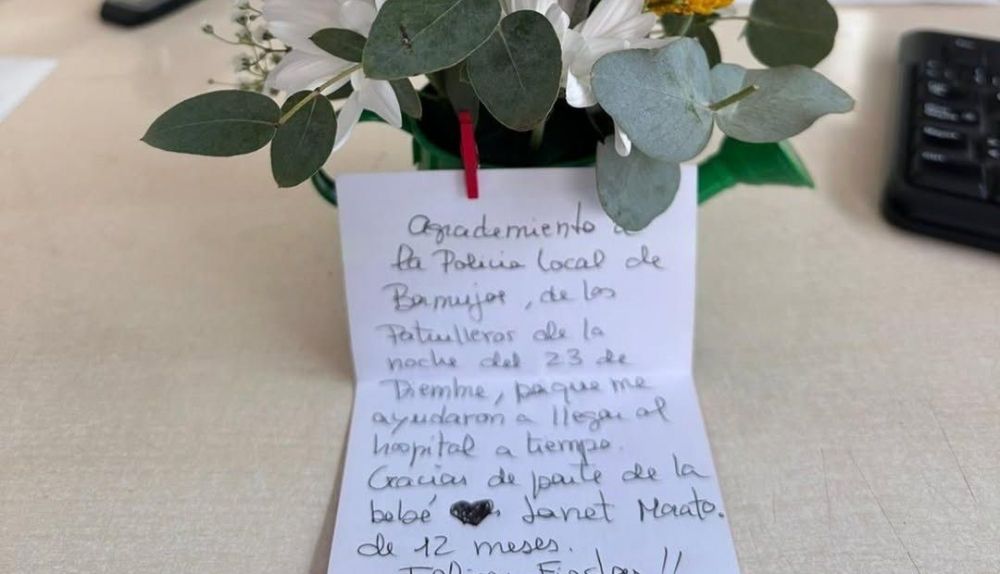 Agrademiento a
la Policia Local de
Bormujos, de los
Patrulleros de la
noche del 23 de
Diembre, paque me
ayudaron a llegar al
hospital a tiempo.
Gracias de parte de la
bebé ♥, Janet Maato.
de 12 meses.
Felices Fiestas!!